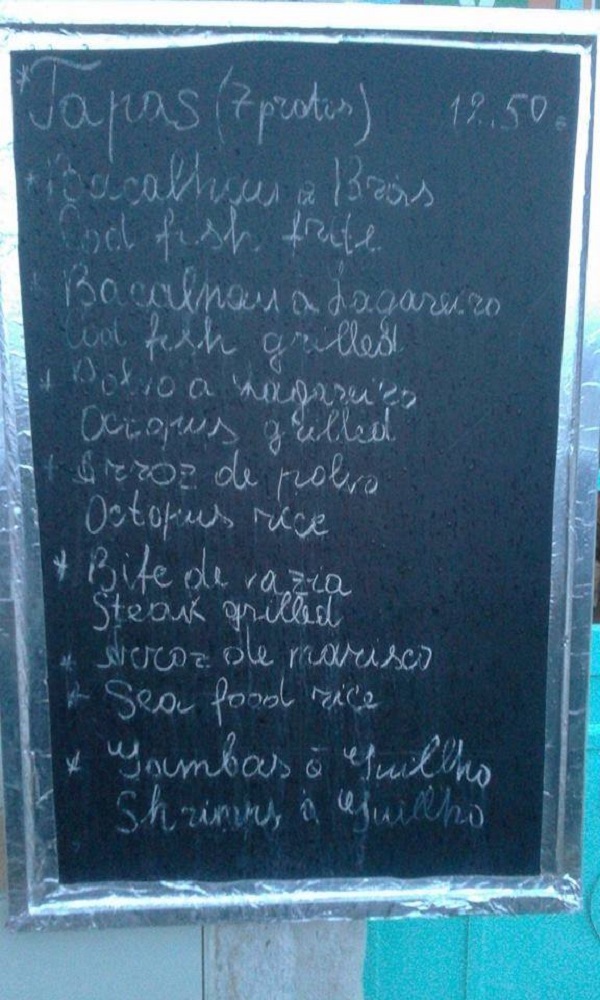 * Tapas (7 pratos) 12.50.
* Bacalhau a Brás
Cod fish frite
* Bacalhau a Lagareiro
Cod fish grilled
* Polvo a Lagareiro
Octopus grilled
* Arroz de polvo
Octopus rice
* Bife de vazia
Steak grilled
* Arroz de marisco
* Sea food rice
* Gambas à Guilho
Shrimps à Guilho